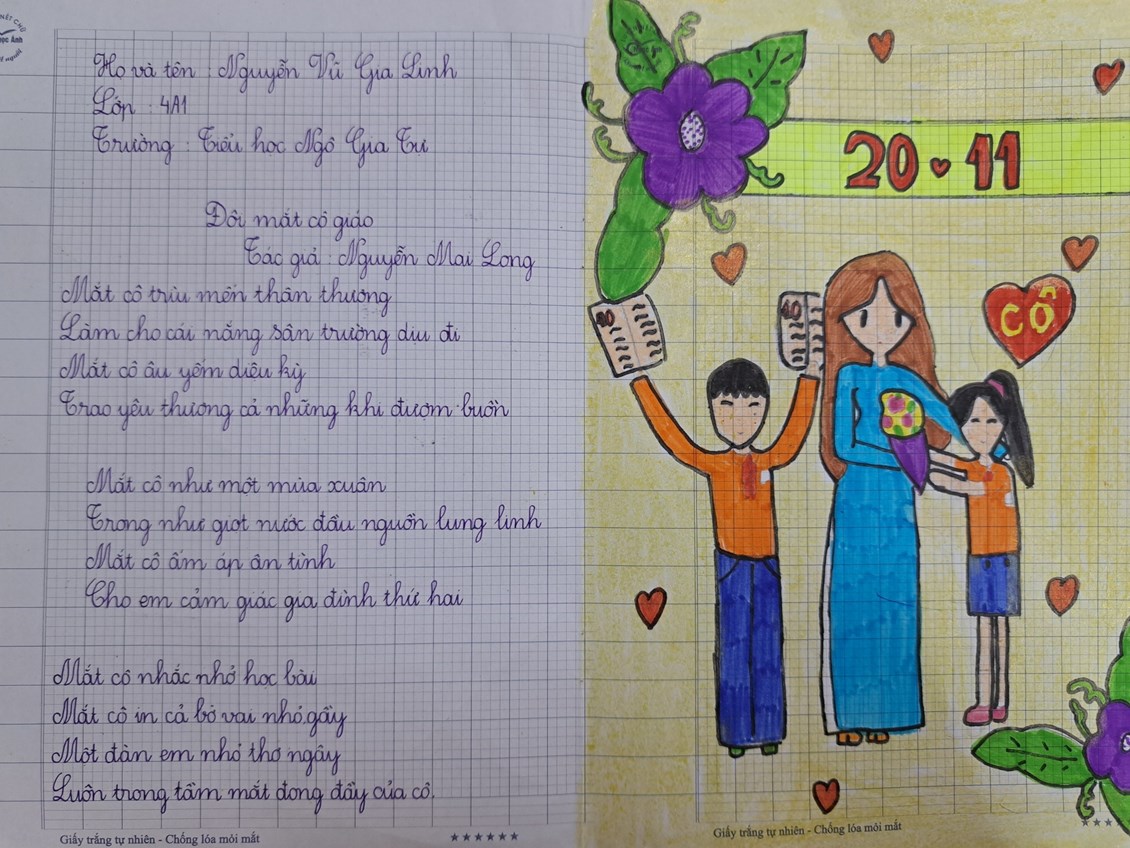 NÉT CHỮ
Ngọc Ánh
Họ và tên : Nguyễn Vũ Gia Linh
Lớp : 4A1
Trường : Tiểu học Ngô Gia Tự
Đôi mắt cô giáo
Tác giả : Nguyễn Mai Long
Mắt cô trìu mến thân thương
Làm cho cái nắng sân trường dịu đi
Mắt cô âu yếm diệu kỳ
Trao yêu thương cả những khi đượm buồn
Mắt cô như một mùa xuân
Trong như giọt nước đầu nguồn lung linh
Mắt cô ấm áp ân tình
Cho em cảm giác gia đình thứ hai
Mắt cô nhắc nhở học bài
Mắt cô in cả bờ vai nhỏ gầy
Một đàn em nhỏ thơ ngây
Luôn trong tầm mắt đong đầy của cô.
Giấy trắng tự nhiên - Chống lóa mỏi mắt
20 11
CÔ
10
10
Giấy trắng tự nhiên - Chống lóa mỏi mắt